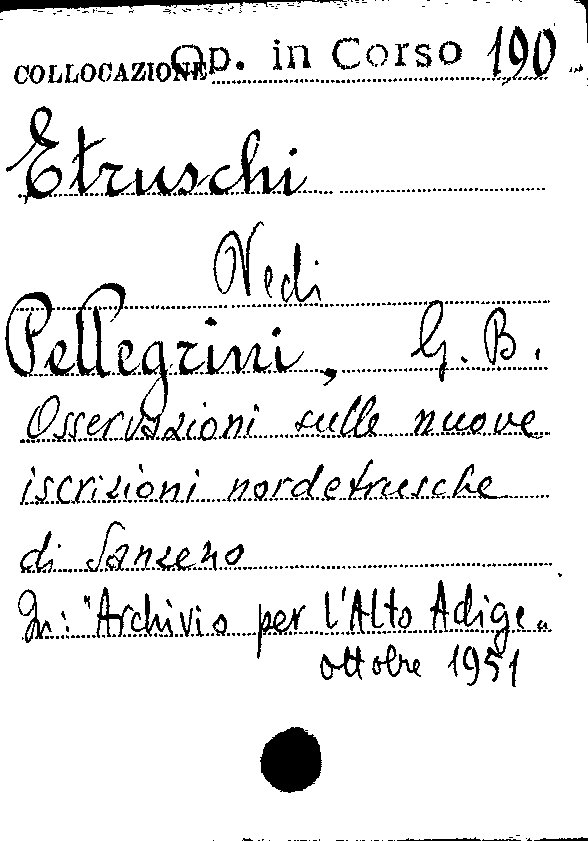 COLLOCAZIONE Op. in Corso 190
Etruschi
Vedi
Pellegrini, G. B.
Osservazioni sulle nuove
iscrizioni nordetrusche
di Sanzeno
In: "Archivio per l'Alto Adige"
ottobre 1951